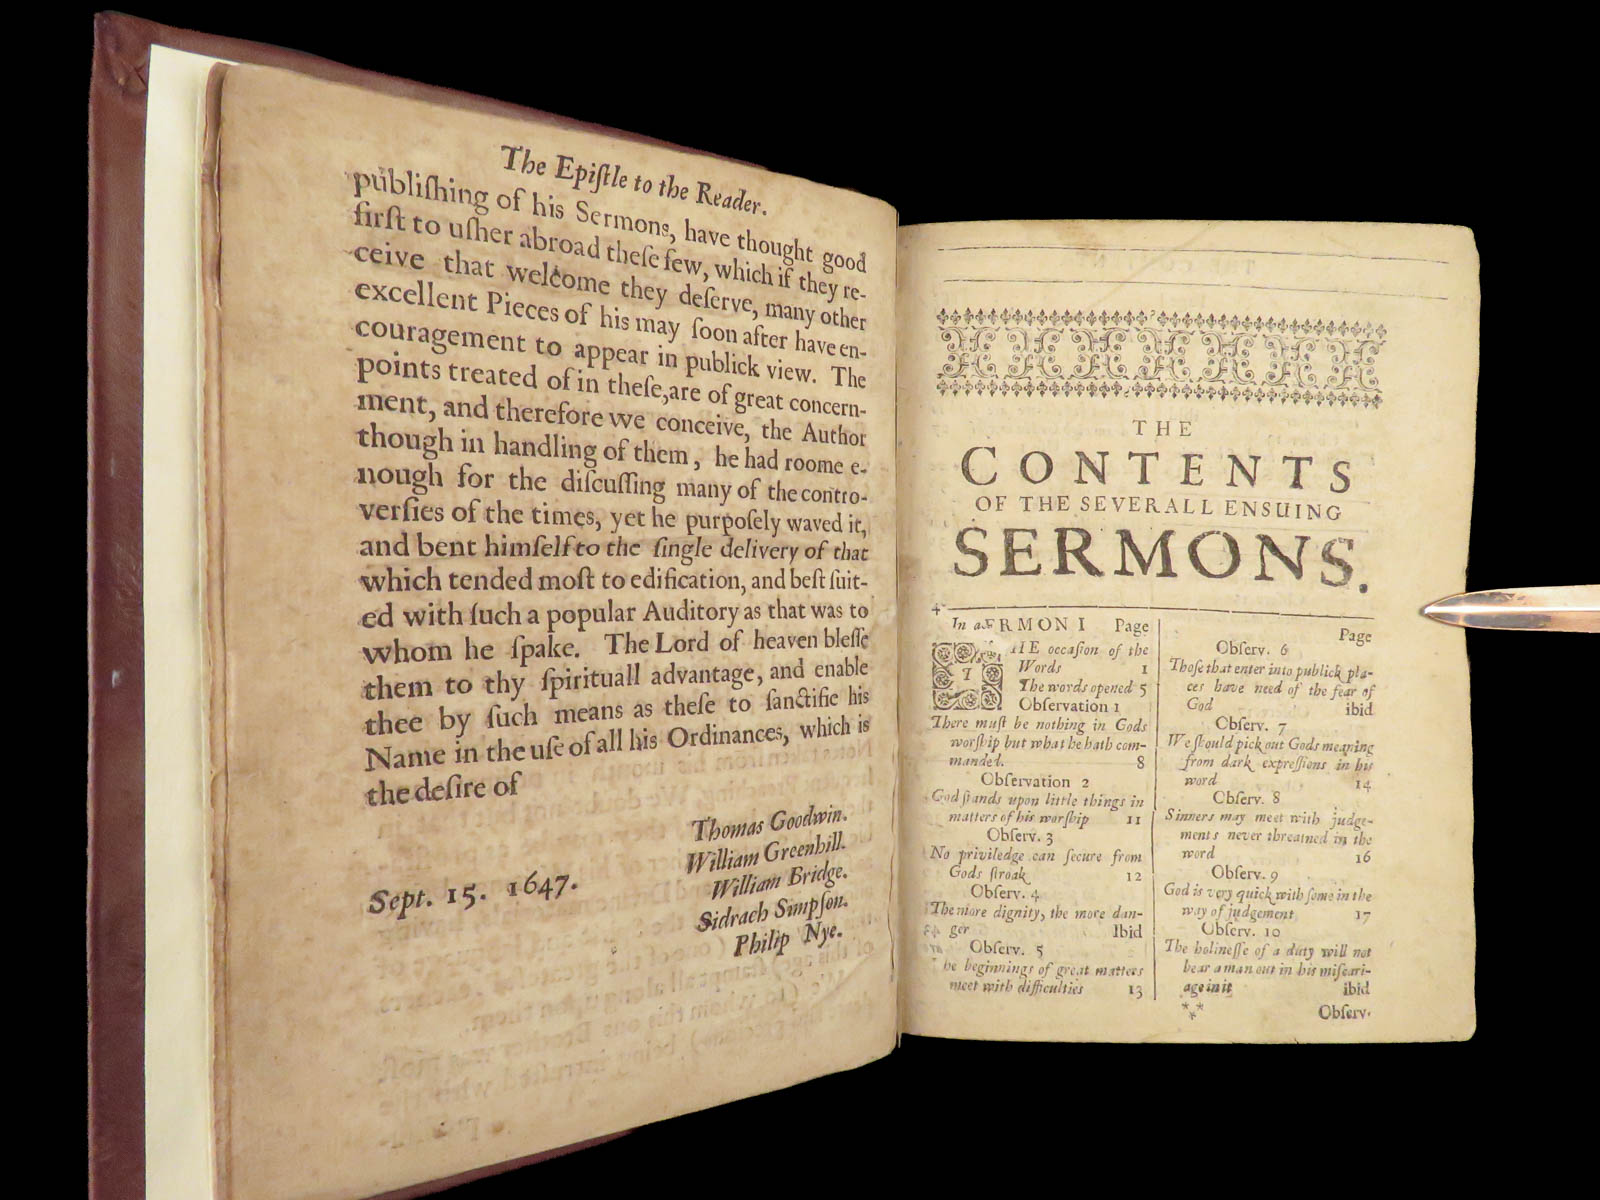 The Epiſtle to the Reader.
publiſhing of his Sermons, have thought good
firſt to uſher abroad theſe few, which if they re-
ceive that welcome they deſerve, many other
excellent Pieces of his may ſoon after have en-
couragement to appear in publick view. The
points treated of in theſe, are of great concern-
ment, and therefore we conceive, the Author
though in handling of them, he had roome e-
nough for the diſcuſſing many of the contro-
verſies of the times, yet he purpoſely waved it,
and bent himſelf to the ſingle delivery of that
which tended moſt to edification, and beſt ſuit-
ed with ſuch a popular Auditory as that was to
whom he ſpake. The Lord of heaven bleſſe
them to thy ſpirituall advantage, and enable
thee by ſuch means as theſe to ſanctifie his
Name in the uſe of all his Ordinances, which is
the deſire of
Thomas Goodwin.
William Greenhill.
William Bridge.
Sidrach Simpſon.
Philip Nye.
Sept. 15. 1647.
THE
CONTENTS
OF THE SEVERALL ENSUING
SERMONS.
SERMON I Page
THE occaſion of the
Words 1
The words opened 5
Obſervation 1
There muſt be nothing in Gods
worſhip but what he hath com-
manded. 8
Obſervation 2
God ſtands upon little things in
matters of his worſhip 11
Obſerv. 3
No priviledge can ſecure from
Gods ſtroak 12
Obſerv. 4
The more dignity, the more dan-
ger Ibid
Obſerv. 5
he beginnings of great matters
meet with difficulties 13
Page
Obſerv. 6
Thoſe that enter into publick pla-
ces have need of the fear of
God ibid
Obſerv. 7
We ſhould pick out Gods meaning
from dark expreſſions in his
word 14
Obſerv. 8
Sinners may meet with judge-
ments never threatned in the
word 16
Obſerv. 9
God is very quick with ſome in the
way of judgement 17
Obſerv. 10
The holineſſe of a duty will not
bear a man out in his miſcari-
age in it ibid
Obſerv.